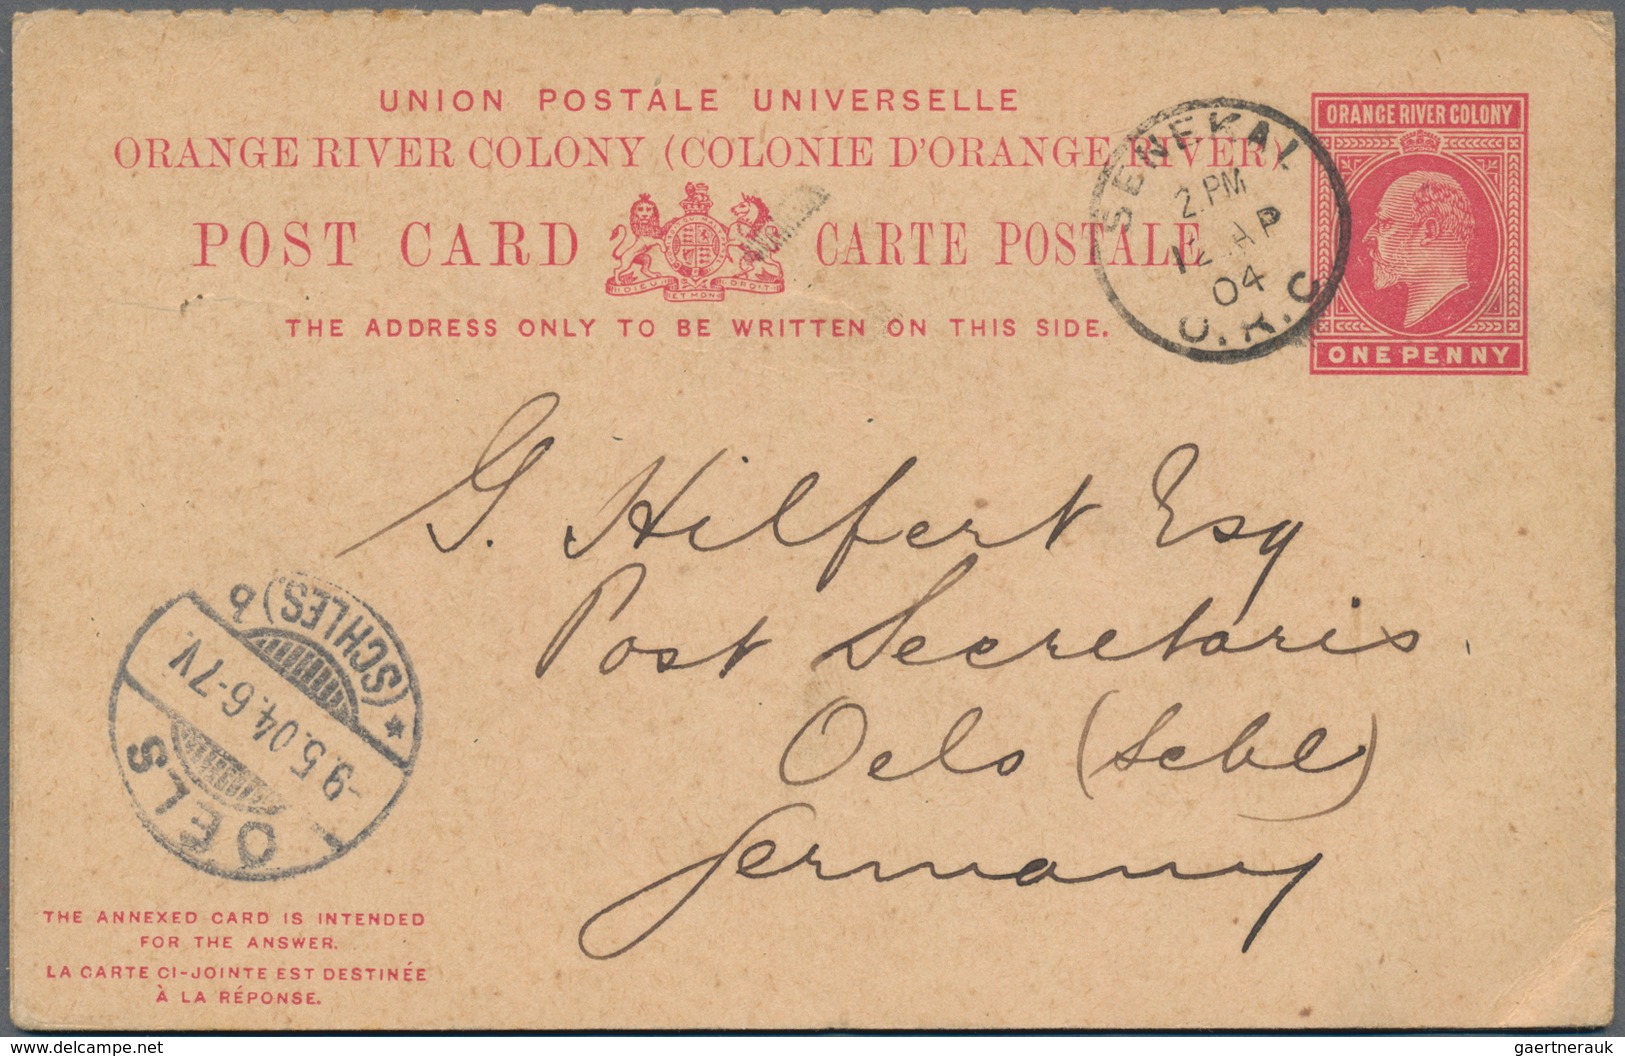 UNION POSTALE UNIVERSELLE
ORANGE RIVER COLONY (COLONIE D'ORANGE RIVER)
POST CARD CARTE POSTALE
DIEU ET MON DROIT
THE ADDRESS ONLY TO BE WRITTEN ON THIS SIDE.
SENEKAL
2.PM
12 AP
04
O.R.C
ORANGE RIVER COLONY
ONE PENNY
G. Hilfert Esq
Post Secretaris.
Oels (Schl)
Germany
OELS
-9.5.04.6-7V.
* (SCHLES.) b
THE ANNEXED CARD IS INTENDED
FOR THE ANSWER.
LA CARTE CI-JOINTE EST DESTINÉE
À LA RÉPONSE.
www.delcampe.net
gaertnerauk